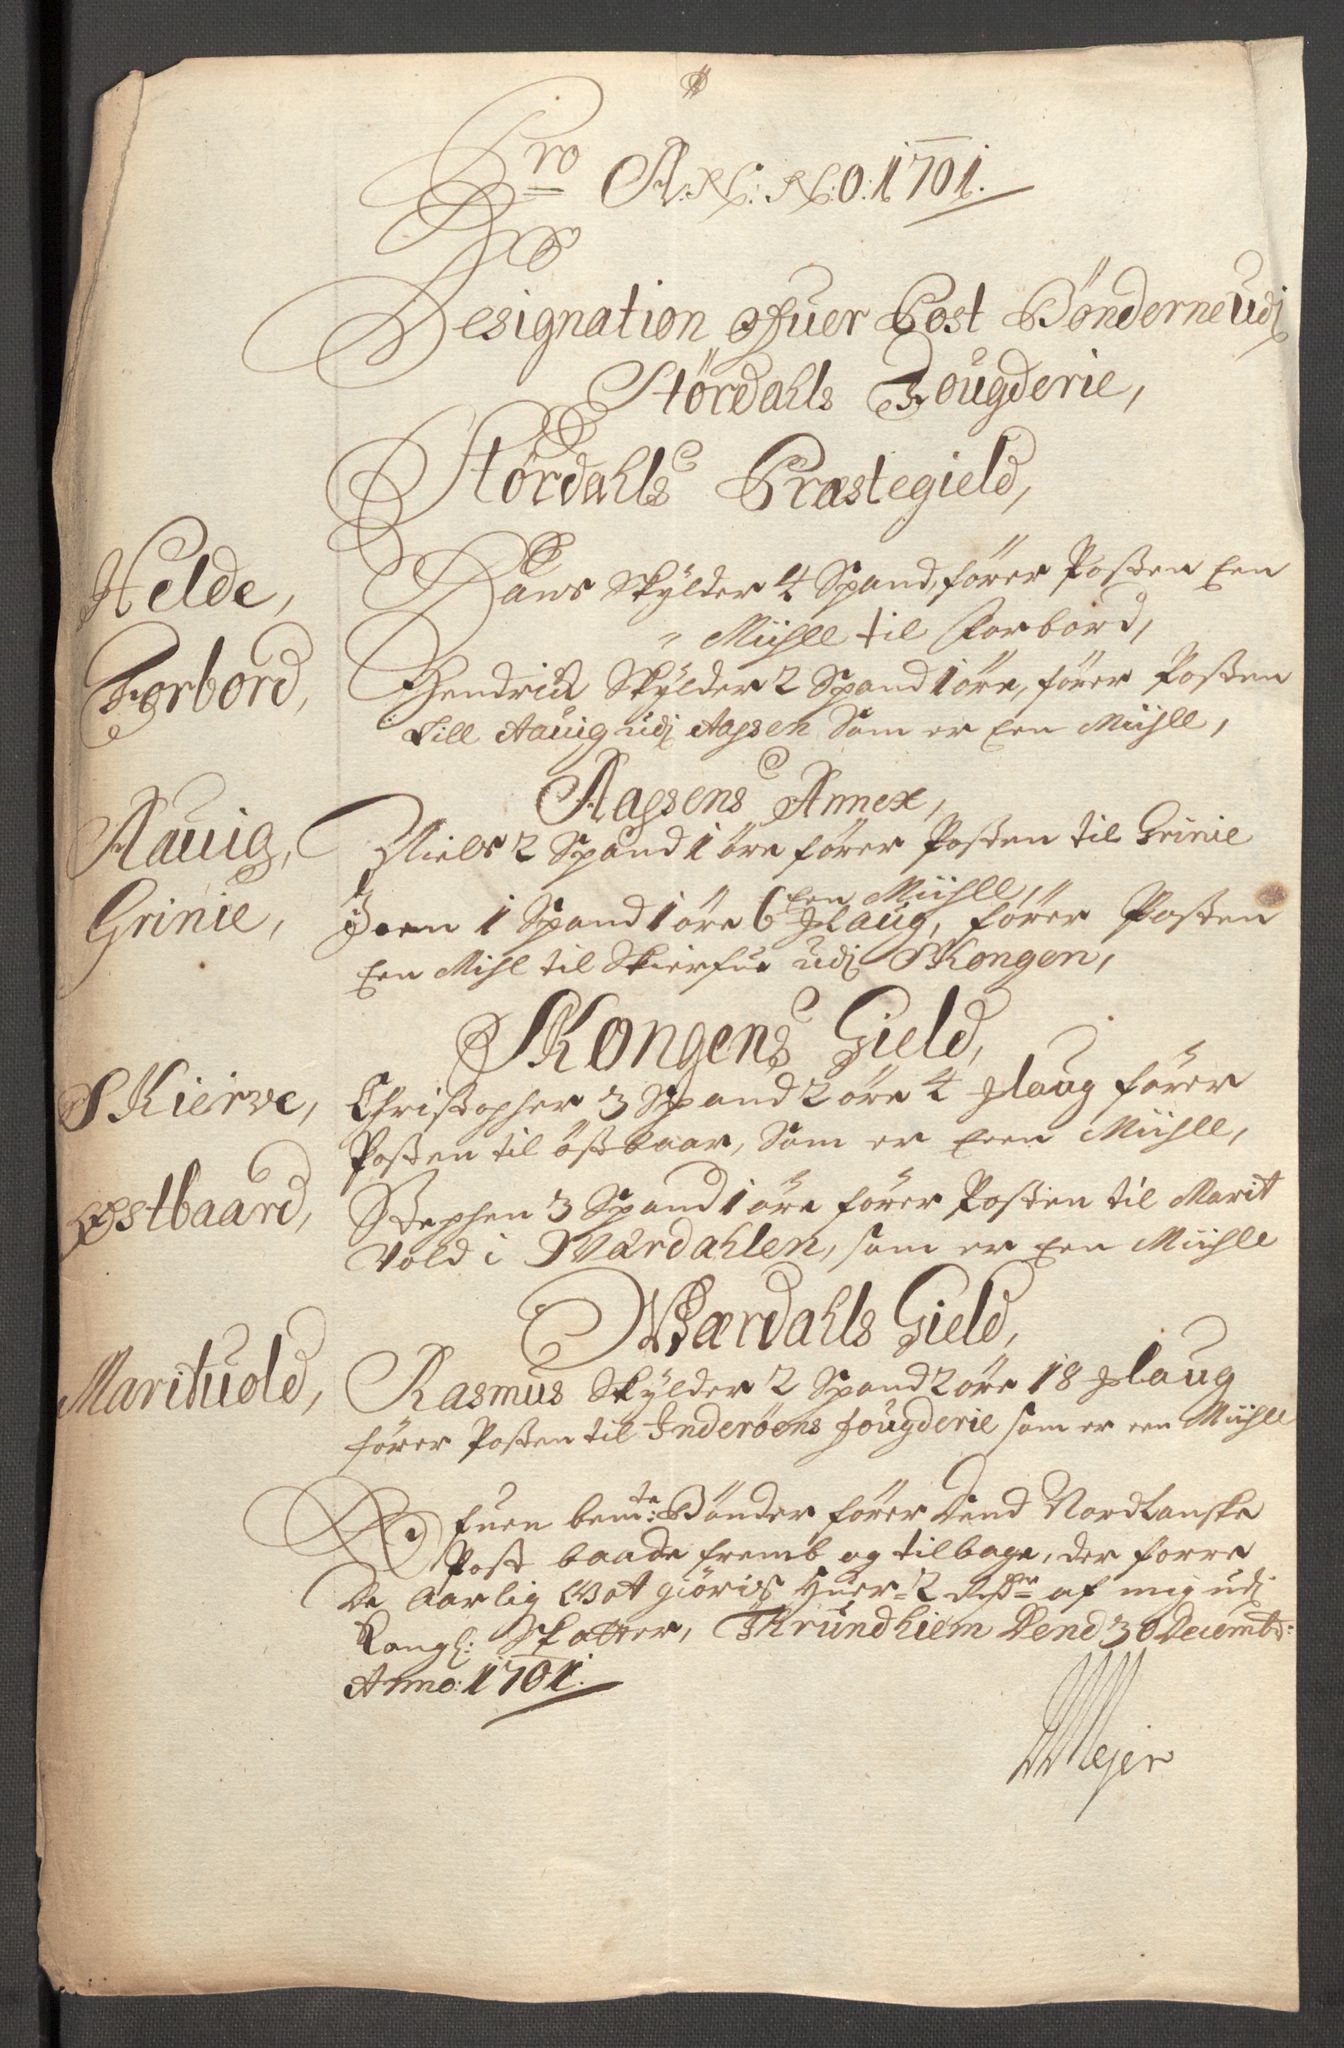 Pro
A:    O: 1701.
Designation ofuer Post Bønderne udj
Størdahls Fougderie,
Størdahls Præstegield,
Helde, Hans Skylder 4 Spand, fører Posten Een
Miihll til Forbord,
Forbord, Hendrick Skylder 2 Spand 1 øre, fører Posten
till Aauig udj Aassen som er Een Miihll,
Aassens Annex,
Aauig, Niels 2 Spand 1 øre fører Posten til Grinie
Een Miihll,
Grinie, Joen 1 Spand 1 øre 6 Marklaug, fører Posten
Een Mihl til Skierfue udj SKongen,
SKongens Gield,
SKierve, Christopher 3 Spand 2 øre 4 Marklaug fører
Posten til østbaar, som er Een Miihll,
Østbaard, Stephen 3 Spand 1 øre fører Posten til Marit
Vold i Wærdahlen, som er Een Miihll
Wærdahls Gield,
Marituold, Rasmus Skylder 2 Spand 2 øre 18 Marklaug
fører Posten til Inderøens fougderie som er een Miihll
Ofuen bemte: Bønder fører dend Nordlanske
Post baade fremb og tilbage, der forre
De Aarlig Got giøris huer 2 Rdr af mig udj
Kongl: Skatter, Thrundhiem Dend 30 Decembr:
Anno: 1701.
Mejer